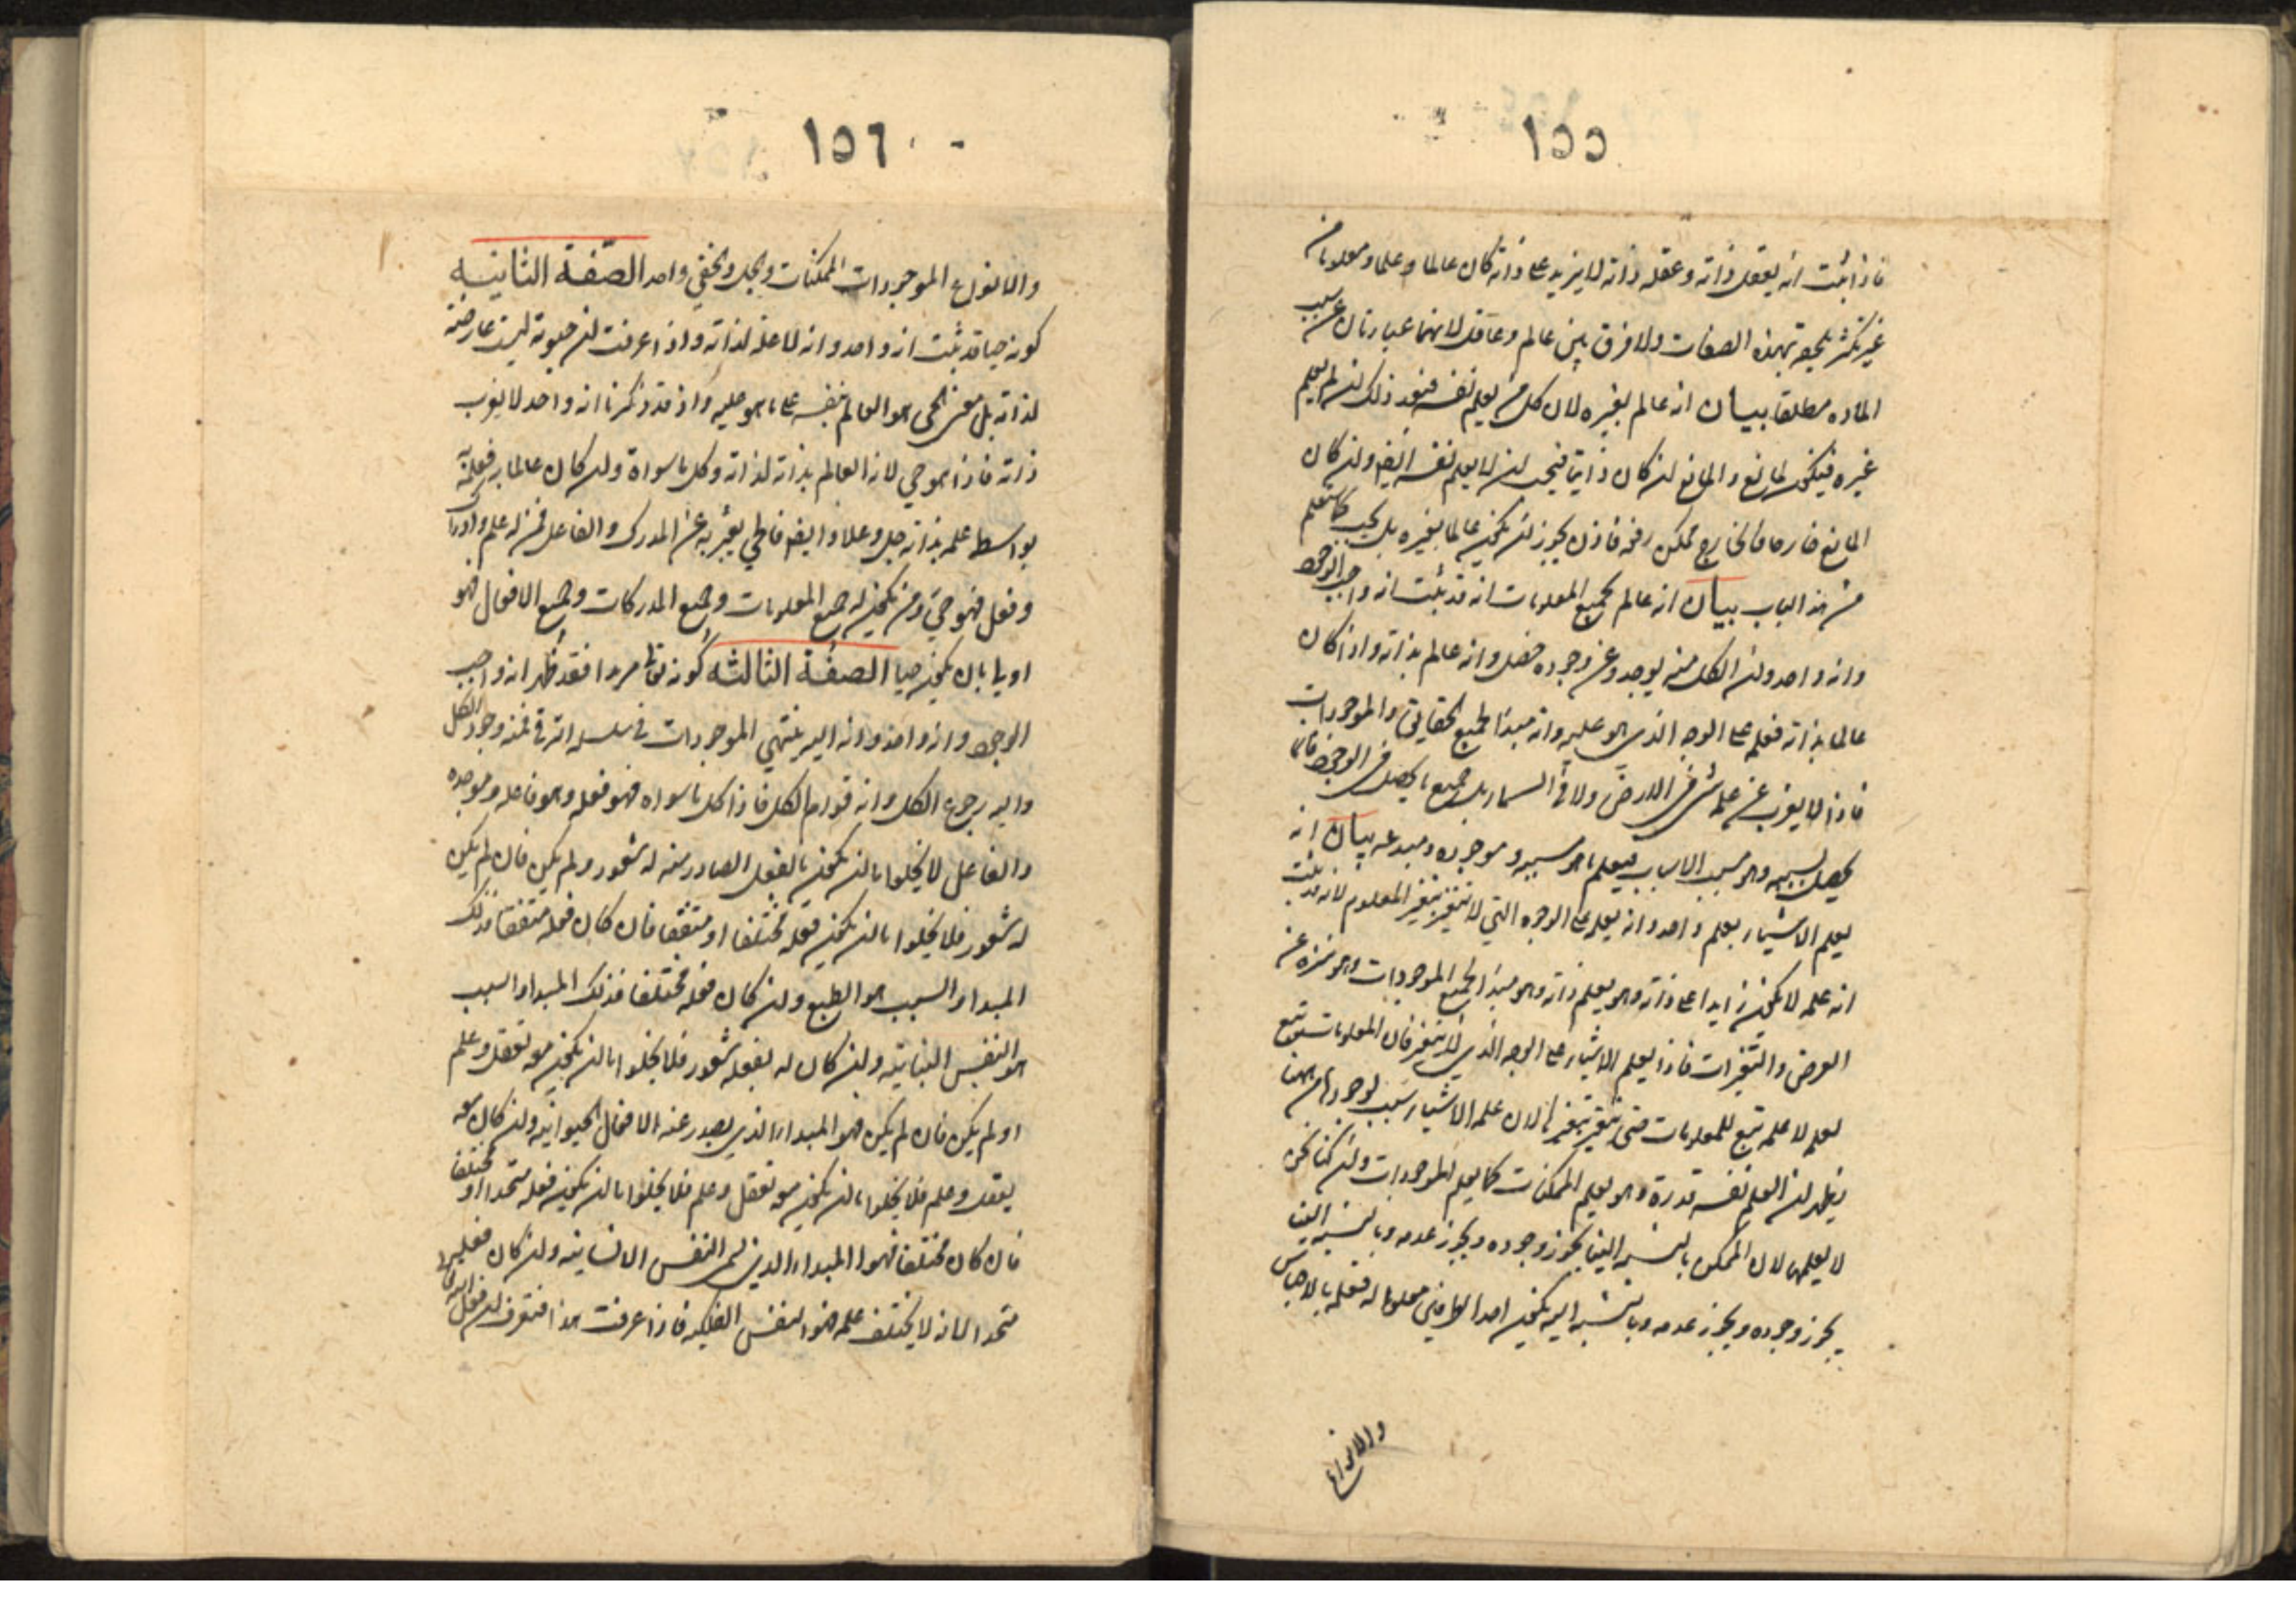 ١٥٥
فاذا ثبت انه يعقل ذاته وعقله ذاته لا يزيد على ذاته كان عالما وعلما ومعلوما من
غير تكثر يلحقه بهذه الصفات ولا فرق بين عالم وعاقل لانهما عبارتان عن سلب
الماده مطلقا بيان انه عالم بغيره لان كل من يعلم نفسه فبعد ذلك ان لم يعلم
غيره فيكون لمانع والمانع ان كان ذاتيا فيجب ان لا يعلم نفسه ايضا وان كان
المانع خارجا فالخارج ممكن رفعه فاذن يجوز ان يكون عالما بغيره بل يجب كما ستعلم
من هذا الباب بيان انه عالم بجميع المعلومات انه قد ثبت انه واجب الوجود
وانه واحد وان الكل منه يوجد وعن وجوده حصل وانه عالم بذاته واذا كان
عالما بذاته فعلمه على الوجه الذي هو عليه وانه مبدأ لجميع الحقايق والموجودات
فاذا لا يعزب عن علمه شئ في الارض ولا في السماء بل جميع ما يحصل في الوجود فانما
يحصل بسببه وهو مسبب الاسباب فيعلم ما هو سببه وموجده ومبدعه بيان انه
يعلم الاشياء بعلم واحد وانه يعلم على الوجه التي لا تتغير بتغير المعلوم لانه قد ثبت
انه علمه لا يكون زايدا على ذاته وهو يعلم ذاته وهو مبدأ لجميع الموجودات وهو منزه عن
العرض والتغيرات فاذا يعلم الاشياء على الوجه الذي لا يتغير فان المعلومات تتبع
لعلمه لا علمه تبع للمعلومات حتى يتغير بتغيرها لان علمه الاشياء سبب لوجودها من ههنا
يظهر ان العلم نفسه قدرة وهو يعلم الممكنات كما يعلم الموجودات وان كنا نحن
لا نعلمها لان الممكن بالنسبه الينا يجوز وجوده ويجوز عدمه وبالنسبه الينا
يجوز وجوده ويجوز عدمه وبالنسبه اليه يكون احد الطرفين معلوما له فعلمه بالاجناس
والانواع
١٥٦
والانواع الموجودات الممكنات والجلي والخفي واحد الصفة الثانيه
كونه حيا قد ثبت انه واحد وانه لا علة لذاته واذا عرفت ان حيوته ليست عارضة
لذاته بل معنى الحي هو العالم بنفسه على ما هو عليه واذ قد ذكرنا انه واحد لا يعزب
ذاته فاذا هو حي لانه العالم بذاته لذاته وكل ما سواه وان كان عالما به فعلمه به
بواسطه علمه بذاته جل وعلا وايضا فالحي يعبر به عن المدرك والفاعل فمن له علم وادراك
وفعل فهو حي ومن يكون له جميع المعلومات وجميع المدركات وجميع الافعال فهو
اولى بان يكون حيا الصفة الثالثه كونه تعالى مريدا فقد ظهر انه واجب
الوجود وانه واحد وانه اليه ينتهي الموجودات في سلسله الترقي فمنه وجود الكل
واليه رجوع الكل وانه قوام الكل فاذا كل ما سواه فهو فعله وهو فاعله وموجده
والفاعل لا يخلوا ما ان يكون بالفعل الصادر منه له شعور ولم يكن فان لم يكن
له شعور فلا يخلوا ما ان يكون فعله مختلفا او متفقا فان كان فعله متفقا فذلك
المبدا والسبب هو الطبع وان كان فعله مختلفا فذلك المبدا والسبب
هو النفس النباتيه وان كان له بفعله شعور فلا يخلوا ما ان يكون معه تعقل وعلم
او لم يكن فان لم يكن فهو المبداء الذي يصدر عنه الافعال الحيوانيه وان كان معه
تعقل وعلم فلا يخلوا ما ان يكون معه تعقل وعلم فلا يخلوا ما ان يكون فعله متحدا او مختلفا
فان كان مختلفا فهوا المبداء الذي لهم النفس الانسانيه وان كان فعله
متحدا لانه لا يختلف علمه فهو النفس الفلكيه فاذا عرفت هذا فتعرف ان فعل الله